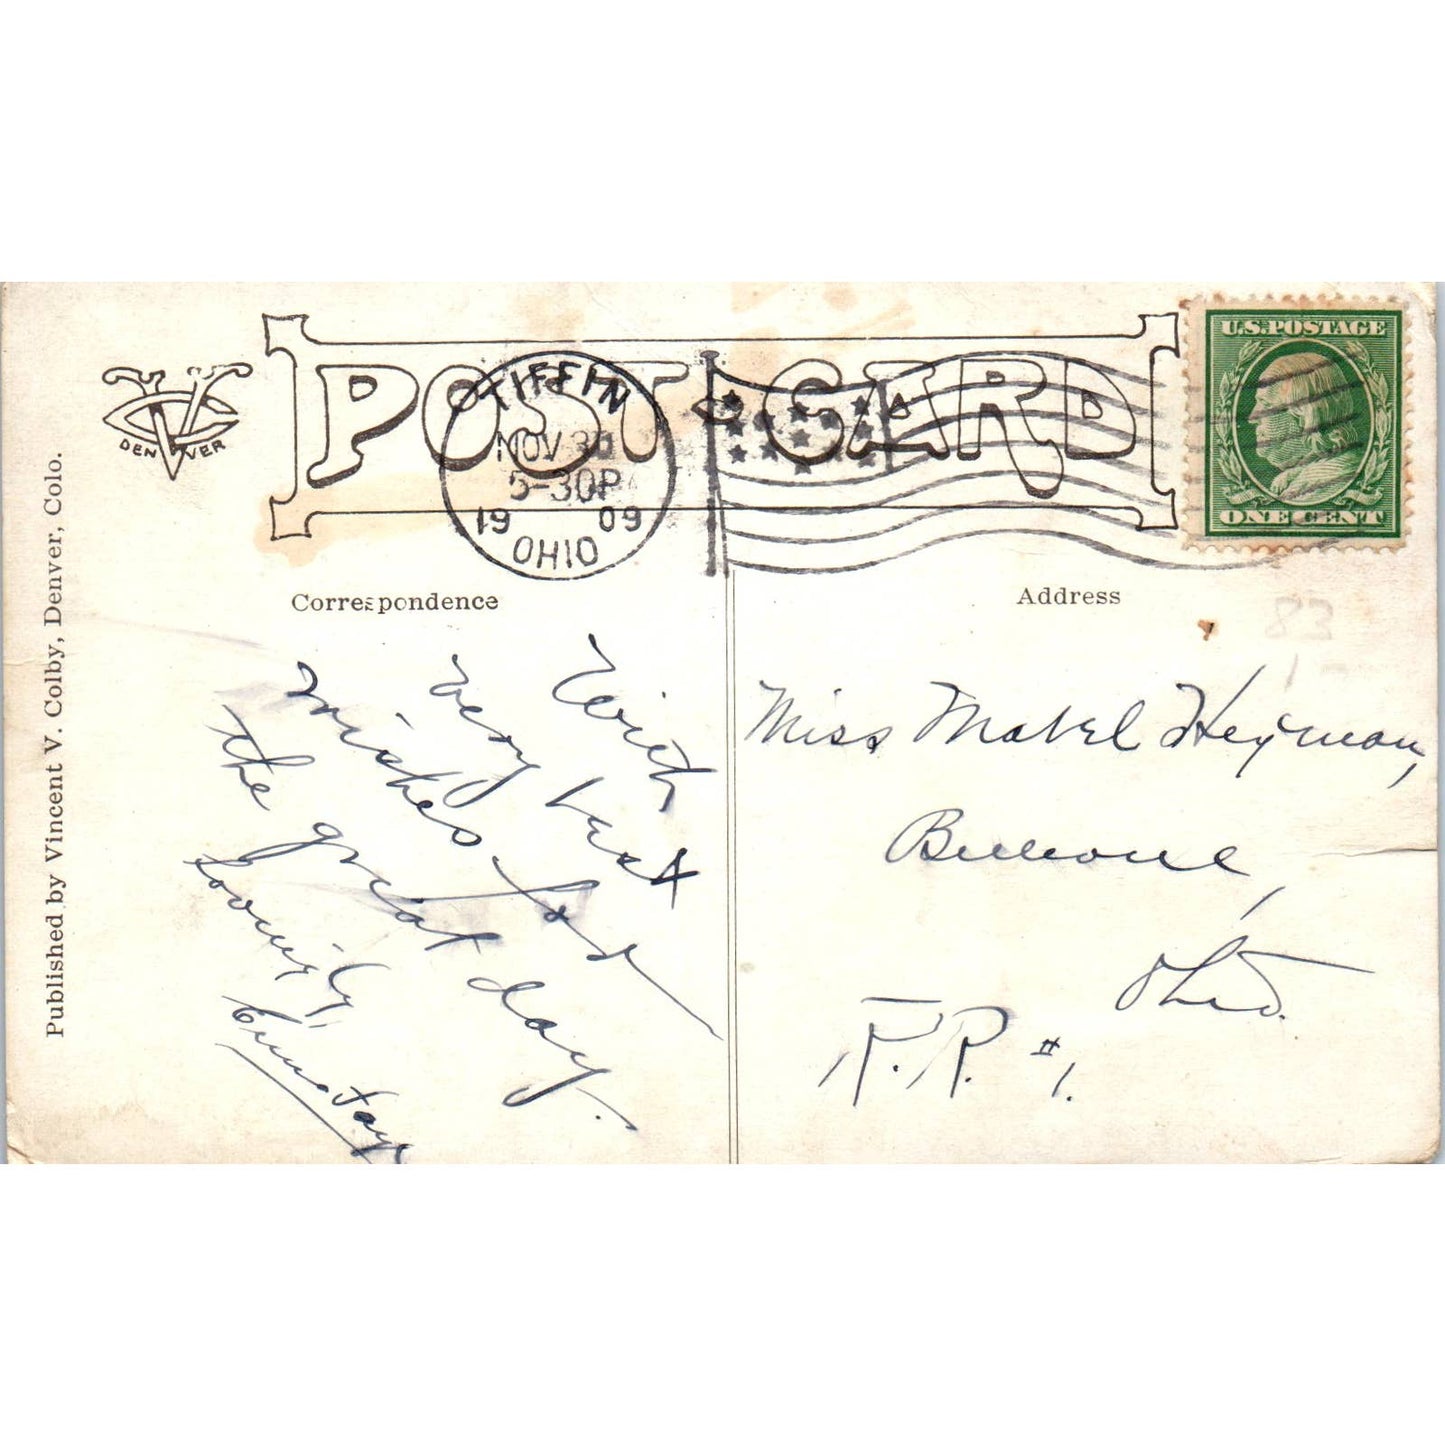 POST CARD
TIFFIN
NOV 30
5-30P
1909
OHIO
U.S. POSTAGE
ONE CENT
DENVER
Published by Vincent V. Colby, Denver, Colo.
Correspondence
Address
83
1-
With
very best
wishes for
the great day.
Lovingly,
Miss Mabel Heyman,
Ohio.
R.R. #1.